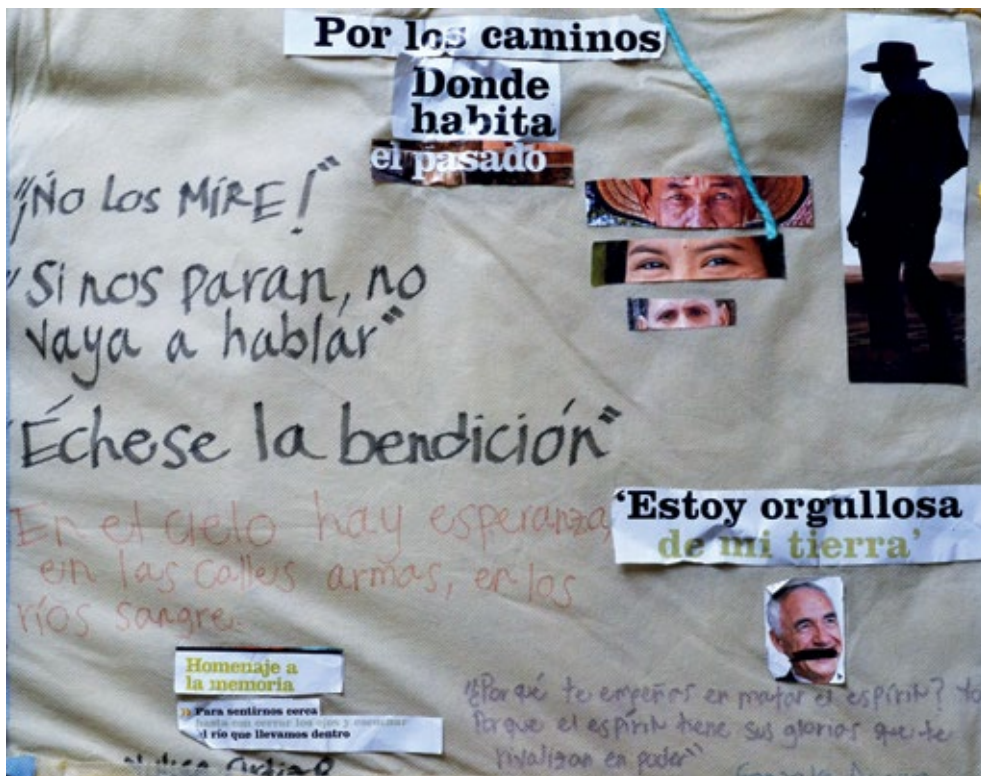 Por los caminos
Donde
habita
el pasado
"¡No los MIRE!"
"Si nos paran, no
vaya a hablar"
"Échese la bendición"
En el cielo hay esperanza,
en las calles armas, en los
ríos sangre.
'Estoy orgullosa
de mi tierra'
Homenaje a
la memoria
Para sentirnos cerca
basta con cerrar los ojos y escuchar
el río que llevamos dentro
"¿Por qué te empeñas en matar el espíritu?
Porque el espíritu tiene sus glorias que te
rivalizan en poder"